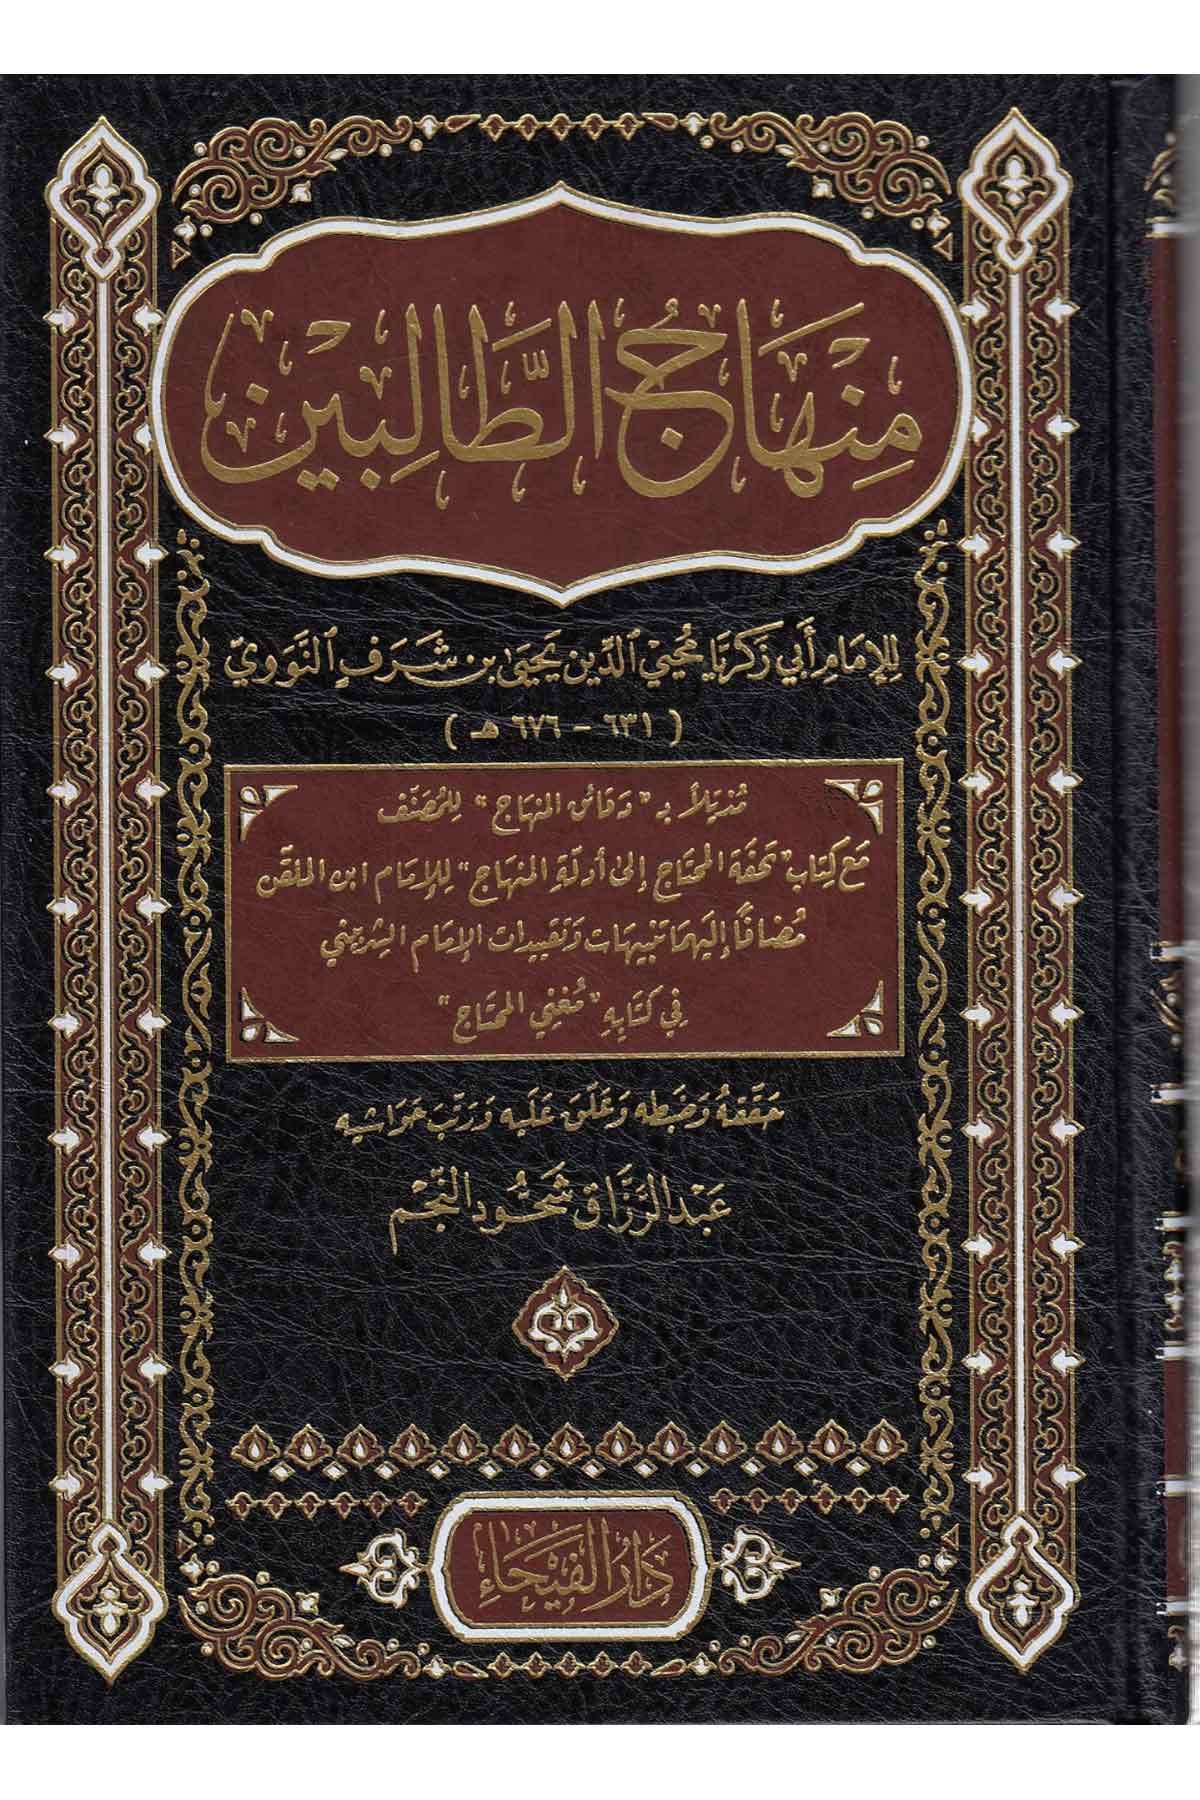 مِنْهَاجُ الطَّالِبِيْن
لِلإِمَامِ أَبِي زَكَرِيَّا مُحْيِي الدِّين يَحْيَىٰ بن شَرَفٍ النَّوَوِيّ
( ٦٣١ - ٦٧٦ هـ )
مُذَيَّلاً بـ "دَقَائق المنهَاج" لِلمُصَنّف
مَع كِتَاب "تحفَة المحتَاج إلىٰ أدلّةِ المنهَاج" لِلإمَام ابن الملقّن
مُضَافاً إليهمَا تنبيهَات وَتقييدَات الإمَام الشربيني
فِي كتَابِهِ "مُغنِي المحتَاج"
حَقّقهُ وَضَبطه وَعَلّق عَلَيه وَرَتّبَ حَوَاشِيه
عَبْد الرَّزَّاق شَحُّود النَّجْم
دَارُ الفَيْحَاءِ